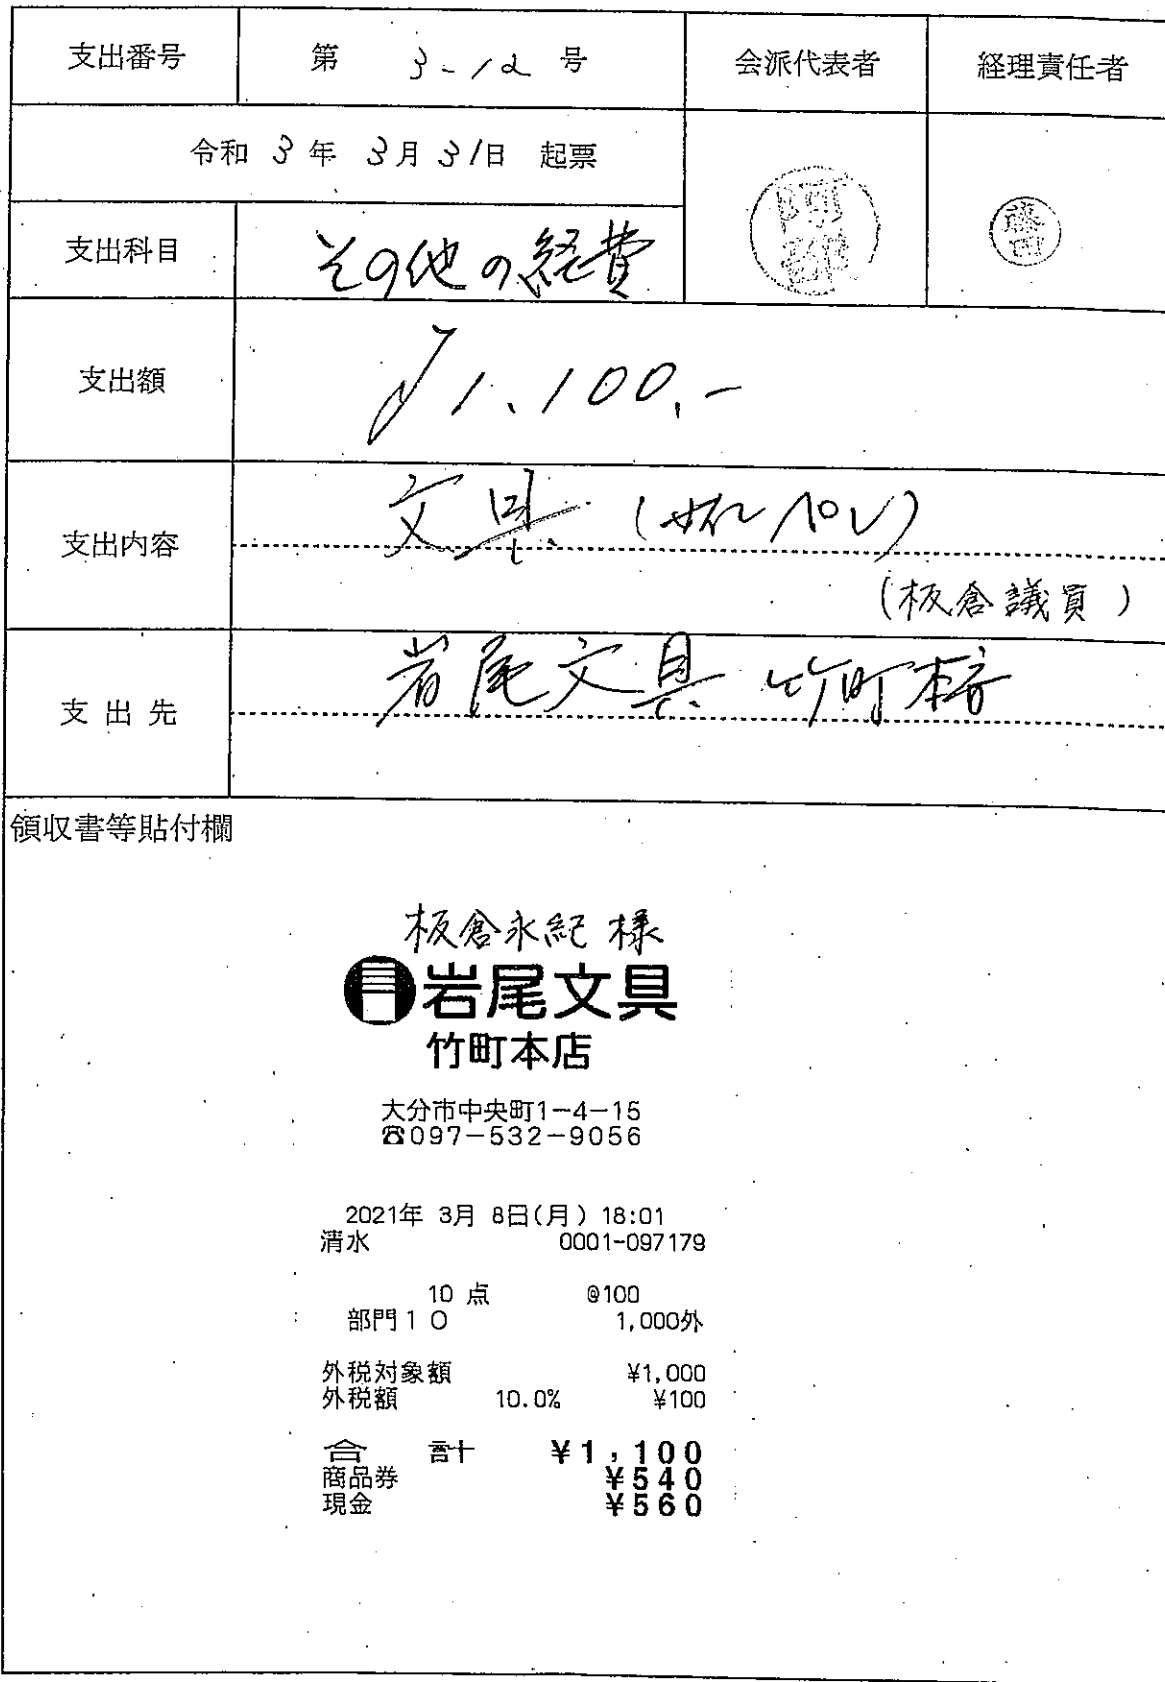 支出番号 第 3-12 号 会派代表者 経理責任者
令和 3 年 3月 31日 起票
藤田
支出科目 その他の経費
支出額 ¥1,100.-
支出内容 文具 (ボールペン)
(板倉議員)
支出先 岩尾文具 竹町本店
領収書等貼付欄
板倉永紀 様
岩尾文具
竹町本店
大分市中央町1-4-15
☎097-532-9056
2021年 3月 8日(月) 18:01
清水 0001-097179
10 点 @100
部門10 1,000外
外税対象額 ¥1,000
外税額 10.0% ¥100
合計 ¥1,100
商品券 ¥540
現金 ¥560